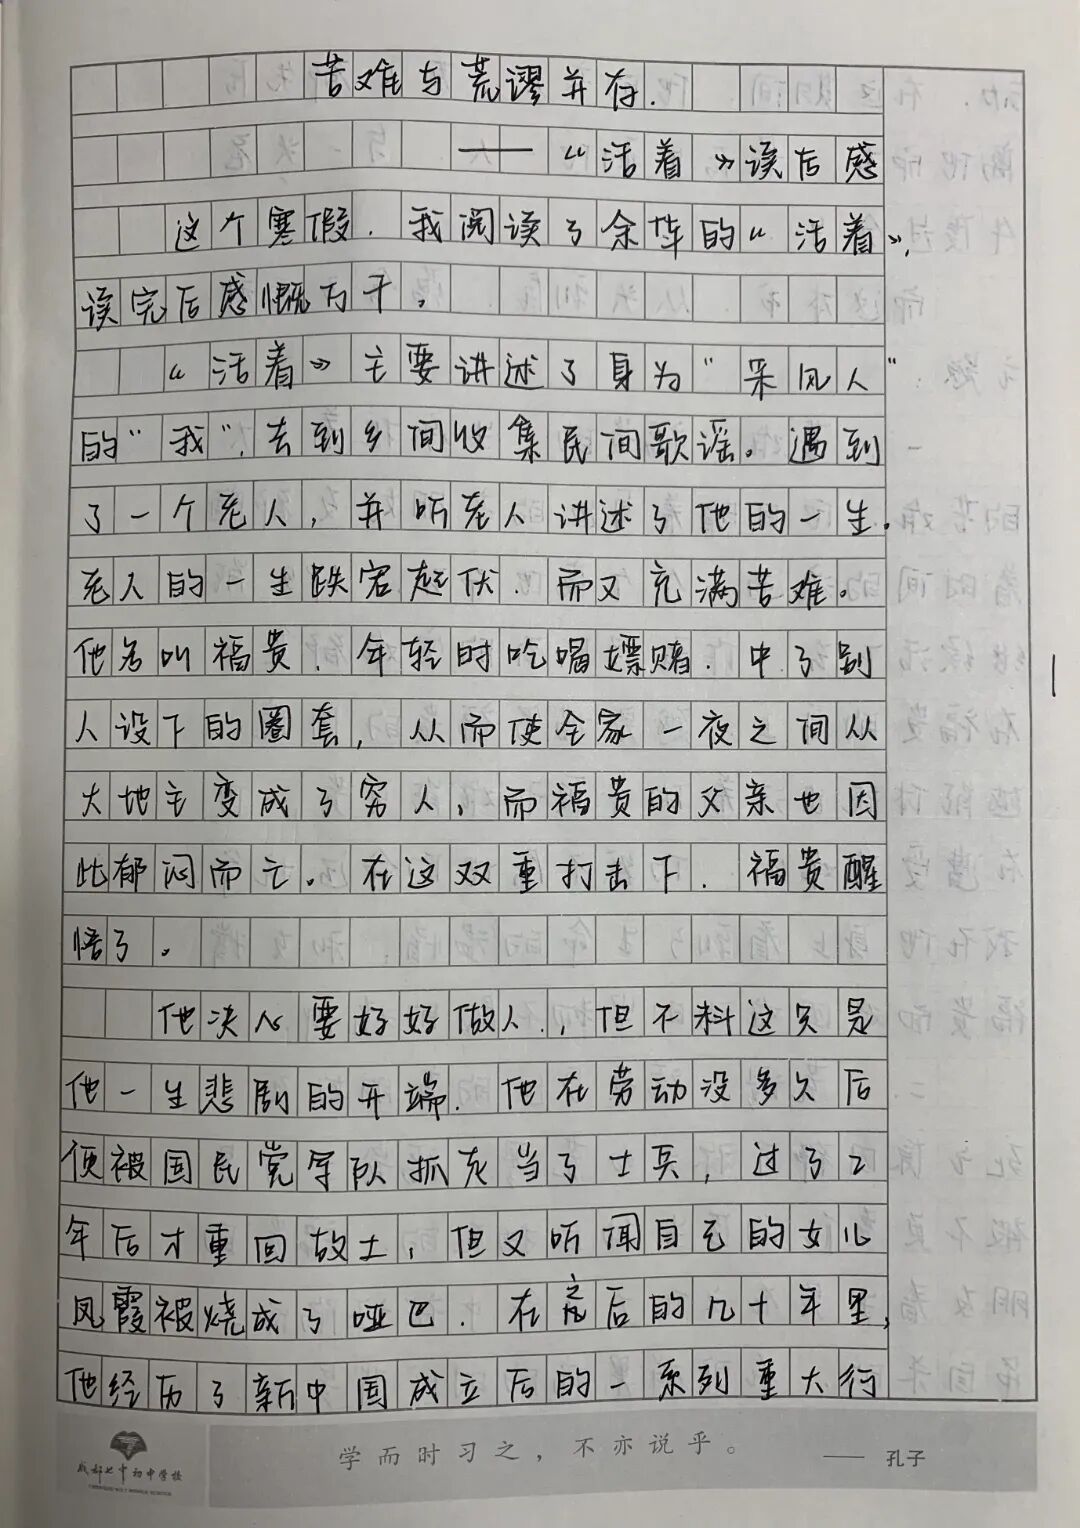 苦难与荒谬并存.
——“活着》读后感
这个寒假.我阅读了余华的“活着》,
读完后感慨万千。
“活着》主要讲述了身为“采风人”
的“我”,去到乡间收集民间歌谣。遇到
了一个老人,并听老人讲述了他的一生.
老人的一生跌宕起伏.而又充满苦难。
他名叫福贵.年轻时吃喝嫖赌.中了别
人设下的圈套,从而使全家一夜之间从
大地主变成了穷人,而福贵的父亲也因
此郁闷而亡。在这双重打击下.福贵醒
悟了。
他决心要好好做人,但不料这只是
他一生悲剧的开端.他在劳动没多久后
便被国民党军队抓去当了士兵,过了2
年后才重回故土,但又听闻自己的女儿
凤霞被烧成了哑巴.在之后的几十年里,
他经历了新中国成立后的一系列重大行
学而时习之,不亦说乎。 —— 孔子
成都七中初中学校